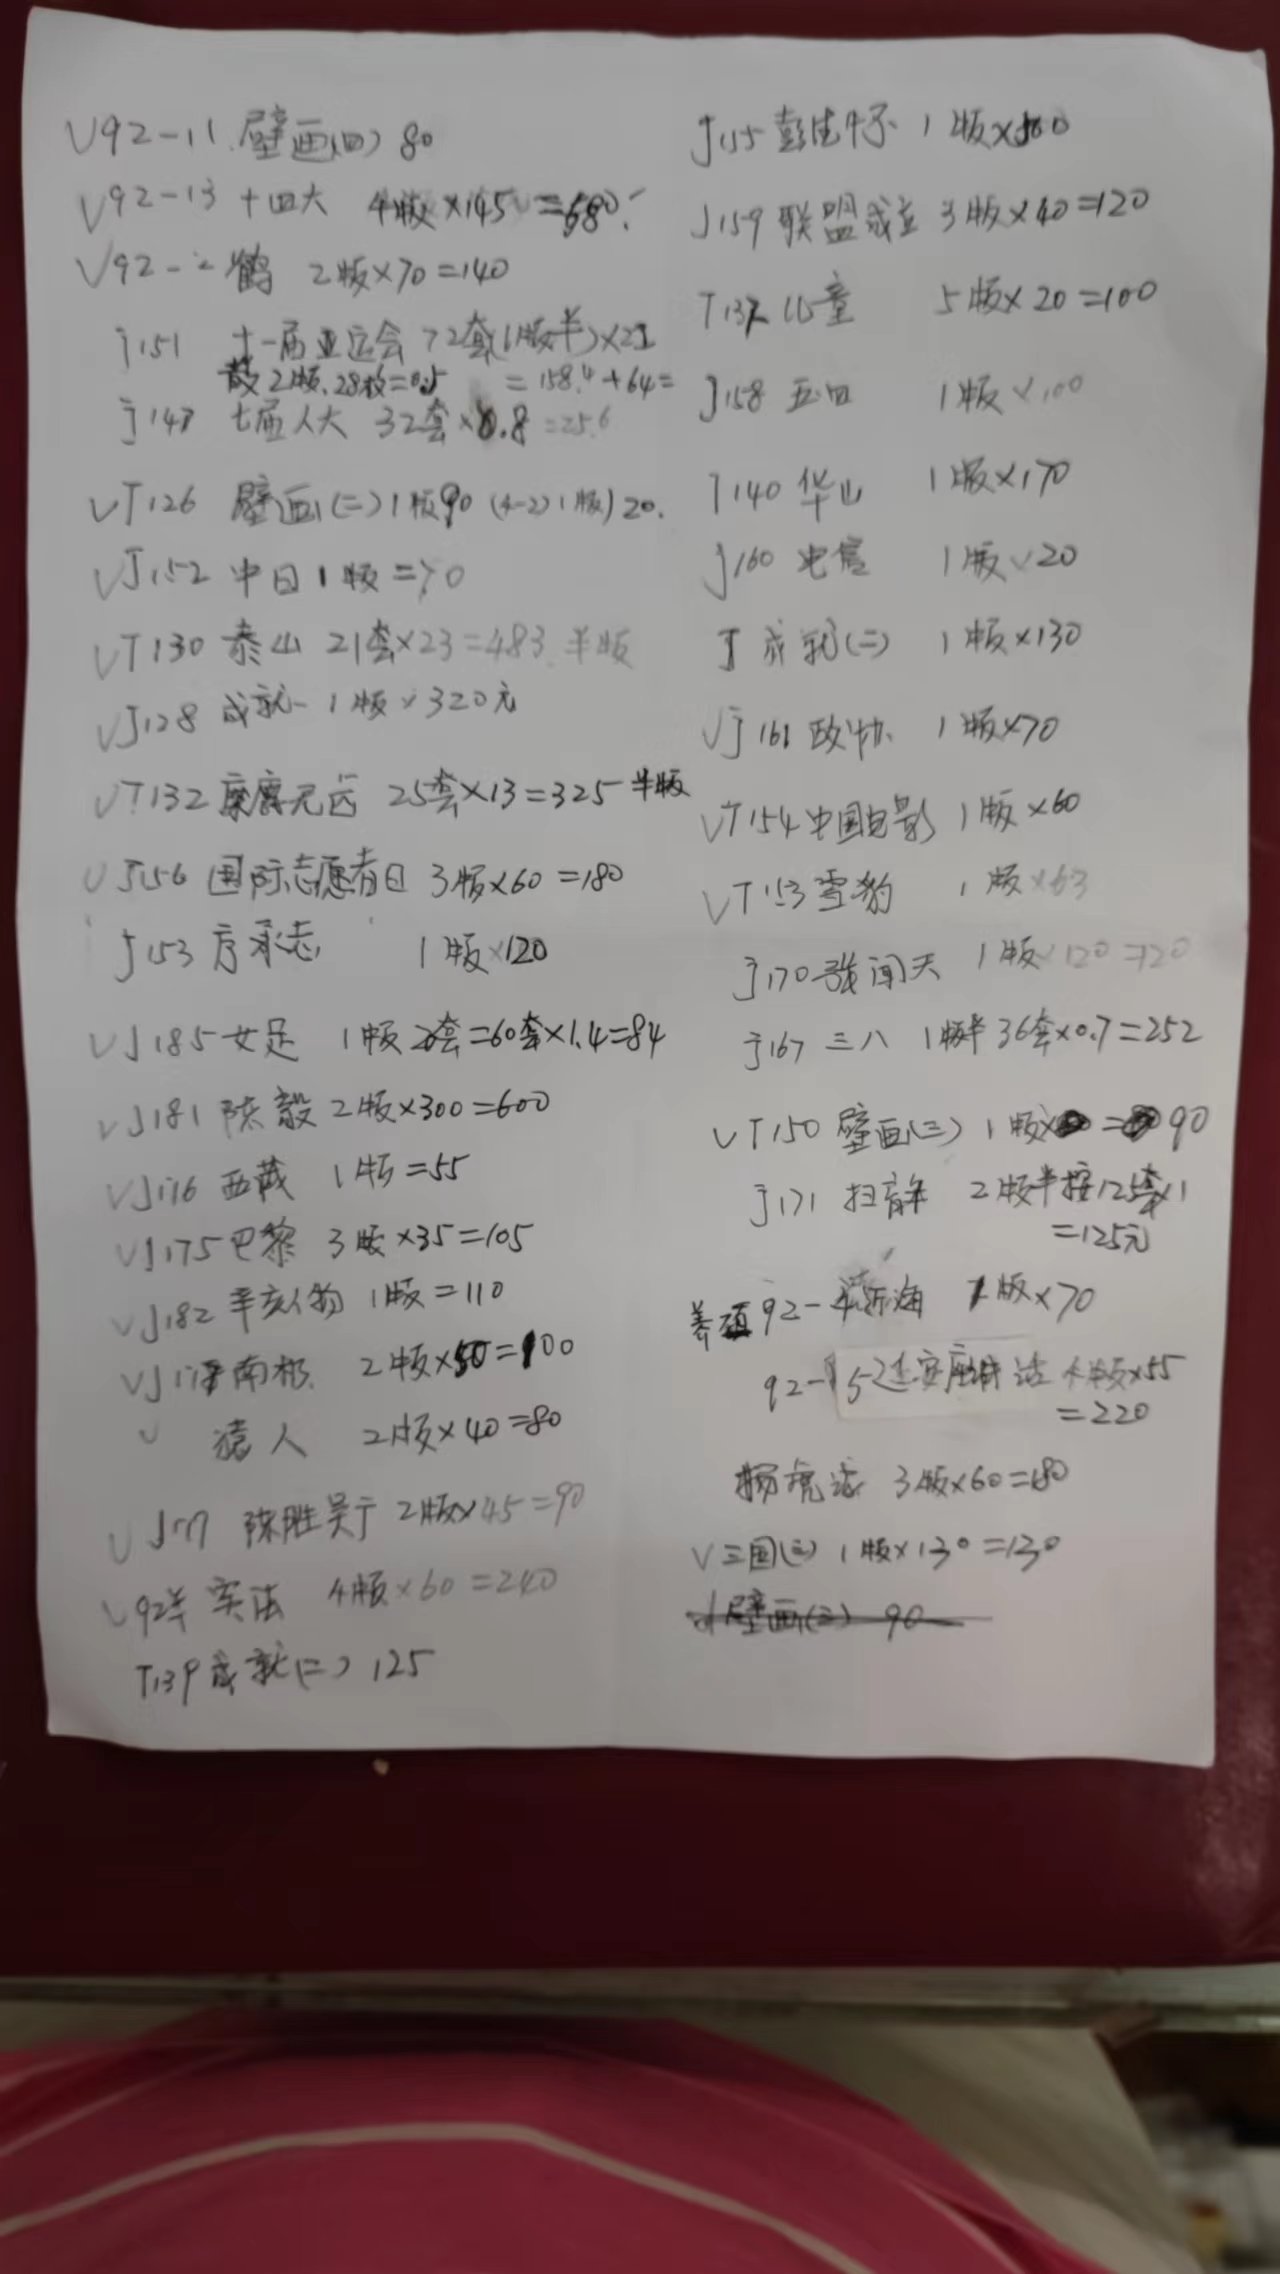 V92-11 壁画(四) 80
V92-13 十四大 4版×145=580
V92-2 鹤 2版×70=140
J151 十一届亚运会 72套(1版半)×2.2
散2版.28枚=0.5 =158.4+64=
J147 七届人大 32套×0.8=25.6
VT126 壁画(二)1版90 (4-2)1版)20.
VJ152 中日1版=70
VT130 泰山 21套×23=483. 半版
VJ128 成就一 1版×320元
VT132 麋鹿无齿 25套×13=325 半版
V J156 国际志愿者日 3版×60=180
J153 方承志 1版×120
VJ185 女足 1版 2套=60套×1.4=84
VJ181 陈毅 2版×300=600
VJ176 西藏 1版=55
VJ175 巴黎 3版×35=105
VJ182 辛亥人物 1版=110
VJ 南极 2版×50=100
V 猿人 2版×40=80
V J 陈胜吴广 2版×45=90
V 92羊 宪法 4版×60=240
T139 成就(二) 125
J155 彭德怀 1版×
J159 联盟成立 3版×40=120
T137 儿童 5版×20=100
J158 五四 1版×100
T140 华山 1版×170
J160 电信 1版×20
T 成就(二) 1版×130
VJ161 政协 1版×70
VT154 中国电影 1版×60
VT153 雪豹 1版×63
J170 张闻天 1版×120=120
J167 三八 1版半 36套×0.7=252
VT150 壁画(三) 1版× = 90
J171 扫盲年 2版半按125套×1
=125元
养殖 92-4 近海 1版×70
92-5 延安座谈 话 4版×55
=220
杨虎诚 3版×60=180
V 三国(三) 1版×130=130
壁画(三) 90